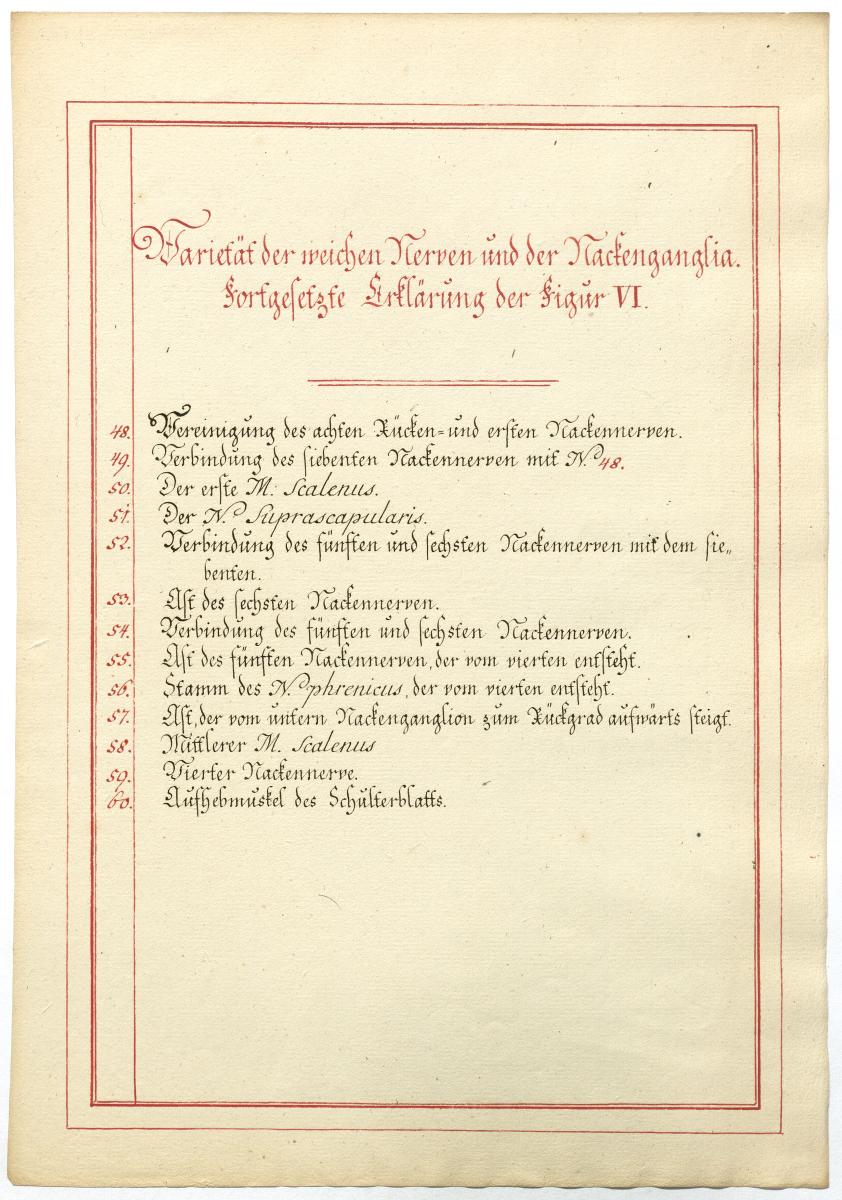 Varietät der weichen Nerven und der Nackenganglia.
Fortgesetzte Erklärung der Figur VI.
48. Vereinigung des achten Rücken= und ersten Nackennerven.
49. Verbindung des siebenten Nackennerven mit N.º 48.
50. Der erste M. Scalenus.
51. Der N. Suprascapularis.
52. Verbindung des fünften und sechsten Nackennerven mit dem sie„
benten.
53. Ast des sechsten Nackennerven.
54. Verbindung des fünften und sechsten Nackennerven.
55. Ast des fünften Nackennerven, der vom vierten entsteht.
56. Stamm des N. phrenicus, der vom vierten entsteht.
57. Ast, der vom untern Nackenganglion zum Rückgrad aufwärts steigt.
58. Mittlerer M. Scalenus
59. Vierter Nackennerve.
60. Aufhebmuskel des Schulterblatts.